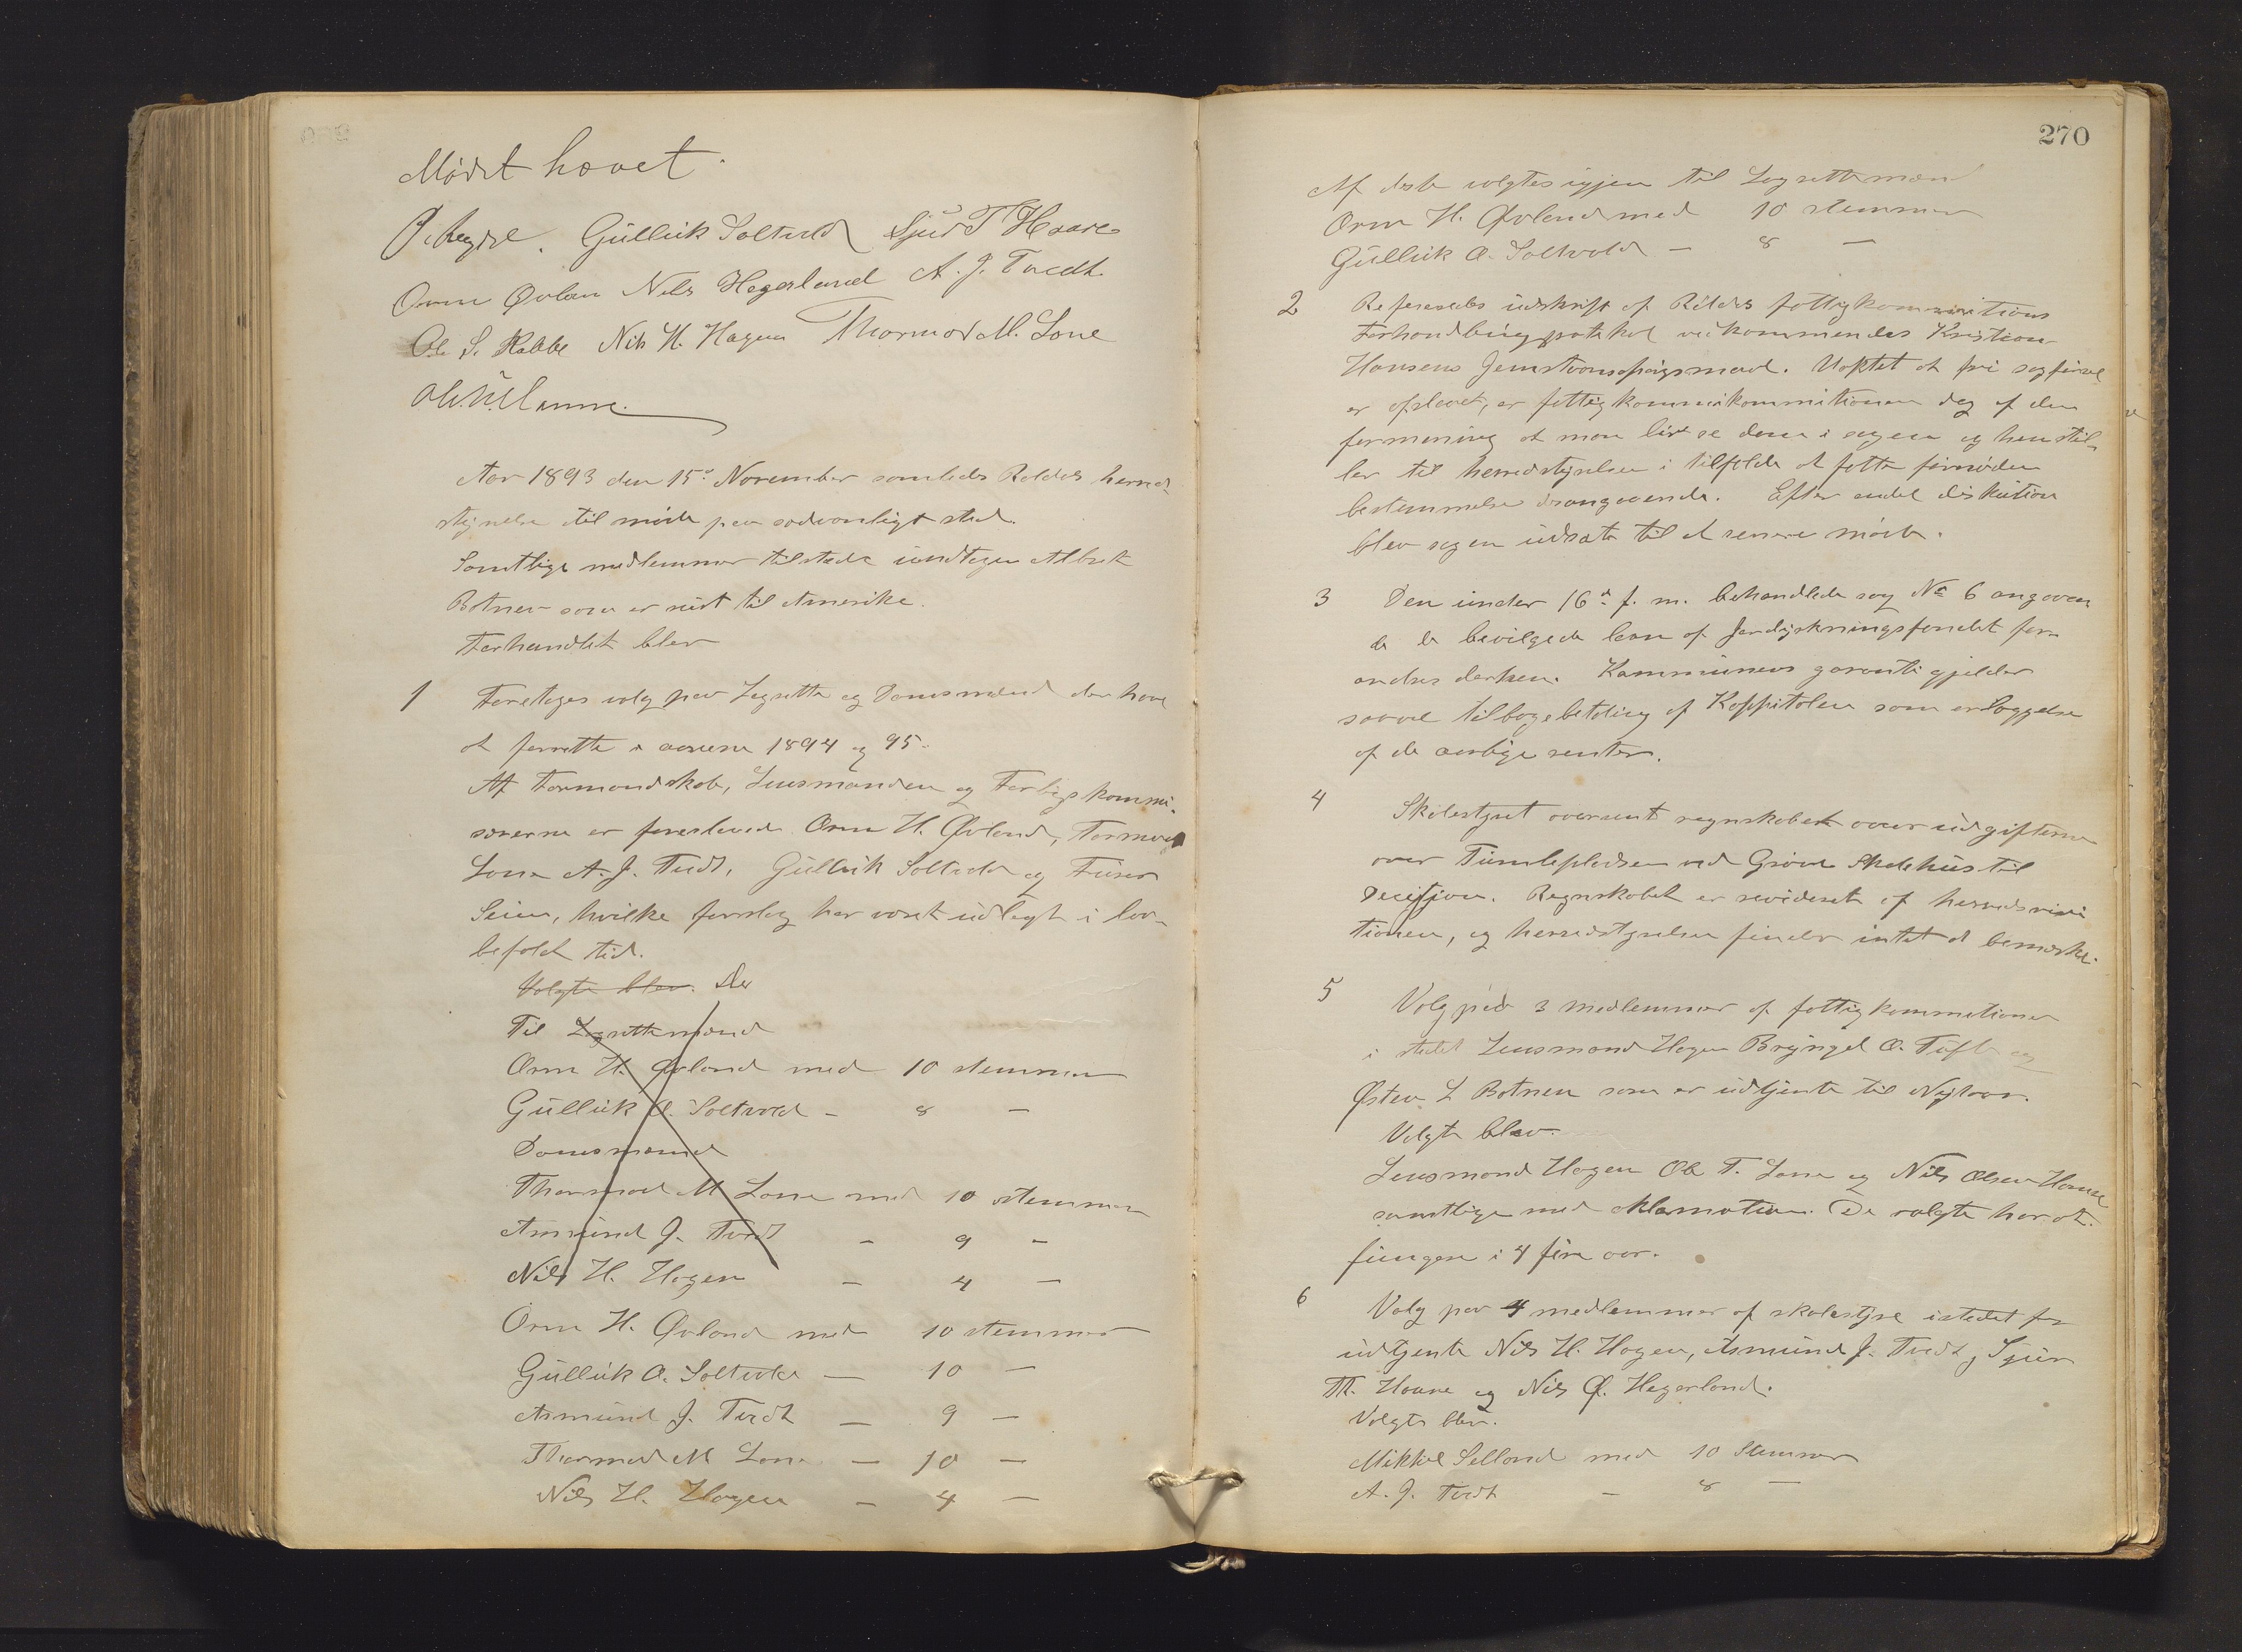 Mødet hævet.
Gullik Soltvedt Sjur T Haare
Orm Øvlan Nils Hegerland A. J. Tvedt
Ole S. Rabbe Nils H. Hagen Thormod M. Lone
Aar 1893 den 15de November samledes Røldals herreds
styrelse til møde paa sædvanligt sted.
Samtlige medlemmer tilstede undtagen Albret
Botnen som er reist til Amerika.
Forhandlet blev
1 Foretoges valg paa Lagrette og Domsmænd der have
at forrette i aarene 1894 og 95.
Af Formandskab, Lensmanden og Forligskommi-
særerne er foreslaaede Orm H. Øvland, Tormod
Lone A. J. Tvedt, Gullik Soltvedt og
Seim, hvilke forslag har været udlagt i lov-
befalet tid.
Valgte blev. De
Til Lagrettemænd
Orm H. Øvland med 10 stemmer
Gullik A. Soltvedt - 8 -
Domsmænd
Thormod M Lone med 10 stemmer
Asmund J. Tvedt - 9 -
Nils H. Hagen - 4 -
Orm H. Øvland med 10 stemmer
Gullik A. Soltvedt - 10 -
Asmund J. Tvedt - 9 -
Thormod M Lone - 10 -
Nils H. Hagen - 4 -
270
Af disse valgtes igjen til Lagrettemænd
Orm H. Øvland med 10 stemmer
Gullik A. Soltvedt - 8 -
2 Refereredes udskrift af Røldals fattigkommissions
Forhandlingsprotokol vedkommende Kristian
Hansens Hjemstavnsspørgsmaal. Uagtet at fri sagførsel
er oplevet, er fattigkommissionen dog af den
formening at man bør se dom i sagen og henstil-
ler til herredstyrelsen i tilfælde at fatte fornøden
bestemmelse desangaaende. Efter endel diskution
blev sagen udsat til et senere møde.
3 Den under 16de f. m. behandlede sag No 6 angaaen
de de bevilgede laan af Jorddyrkningsfondet for-
andres derhen. Kommunens garanti gjelder
saavel tilbagebetaling af Kappitalen som erlæggelse
af de aarlige renter.
4 Skolestyret oversent regnskabet over udgifterne
over Tumlepladsen ved Grøve Skolehus til
Decisjon. Regnskabet er revideret af herredsrevi
tionen, og herredstyrelsen finder intet at bemærke.
5 Valg paa 3 medlemmer af fattigkommitionen
i stedet Lensmand Hagen Bryngel O. Tufte og
Østen L Botnen som er udtjente til Nytaar.
Valgte blev.
Lensmand Hagen Ole T. Lone og Nils Olsen Hamre
samtlige med aklamation. De valgte har at
fungere i 4 fire aar.
6 Valg paa 4 medlemmer af skolestyre istedet for
udtjente Nils H. Hagen, Asmund J. Tvedt, Sjur
Th. Haare og Nils Ø. Hegerland.
Valgte blev.
Mikkel Selland med 10 Stemmer
A. J. Tvedt - 8 -